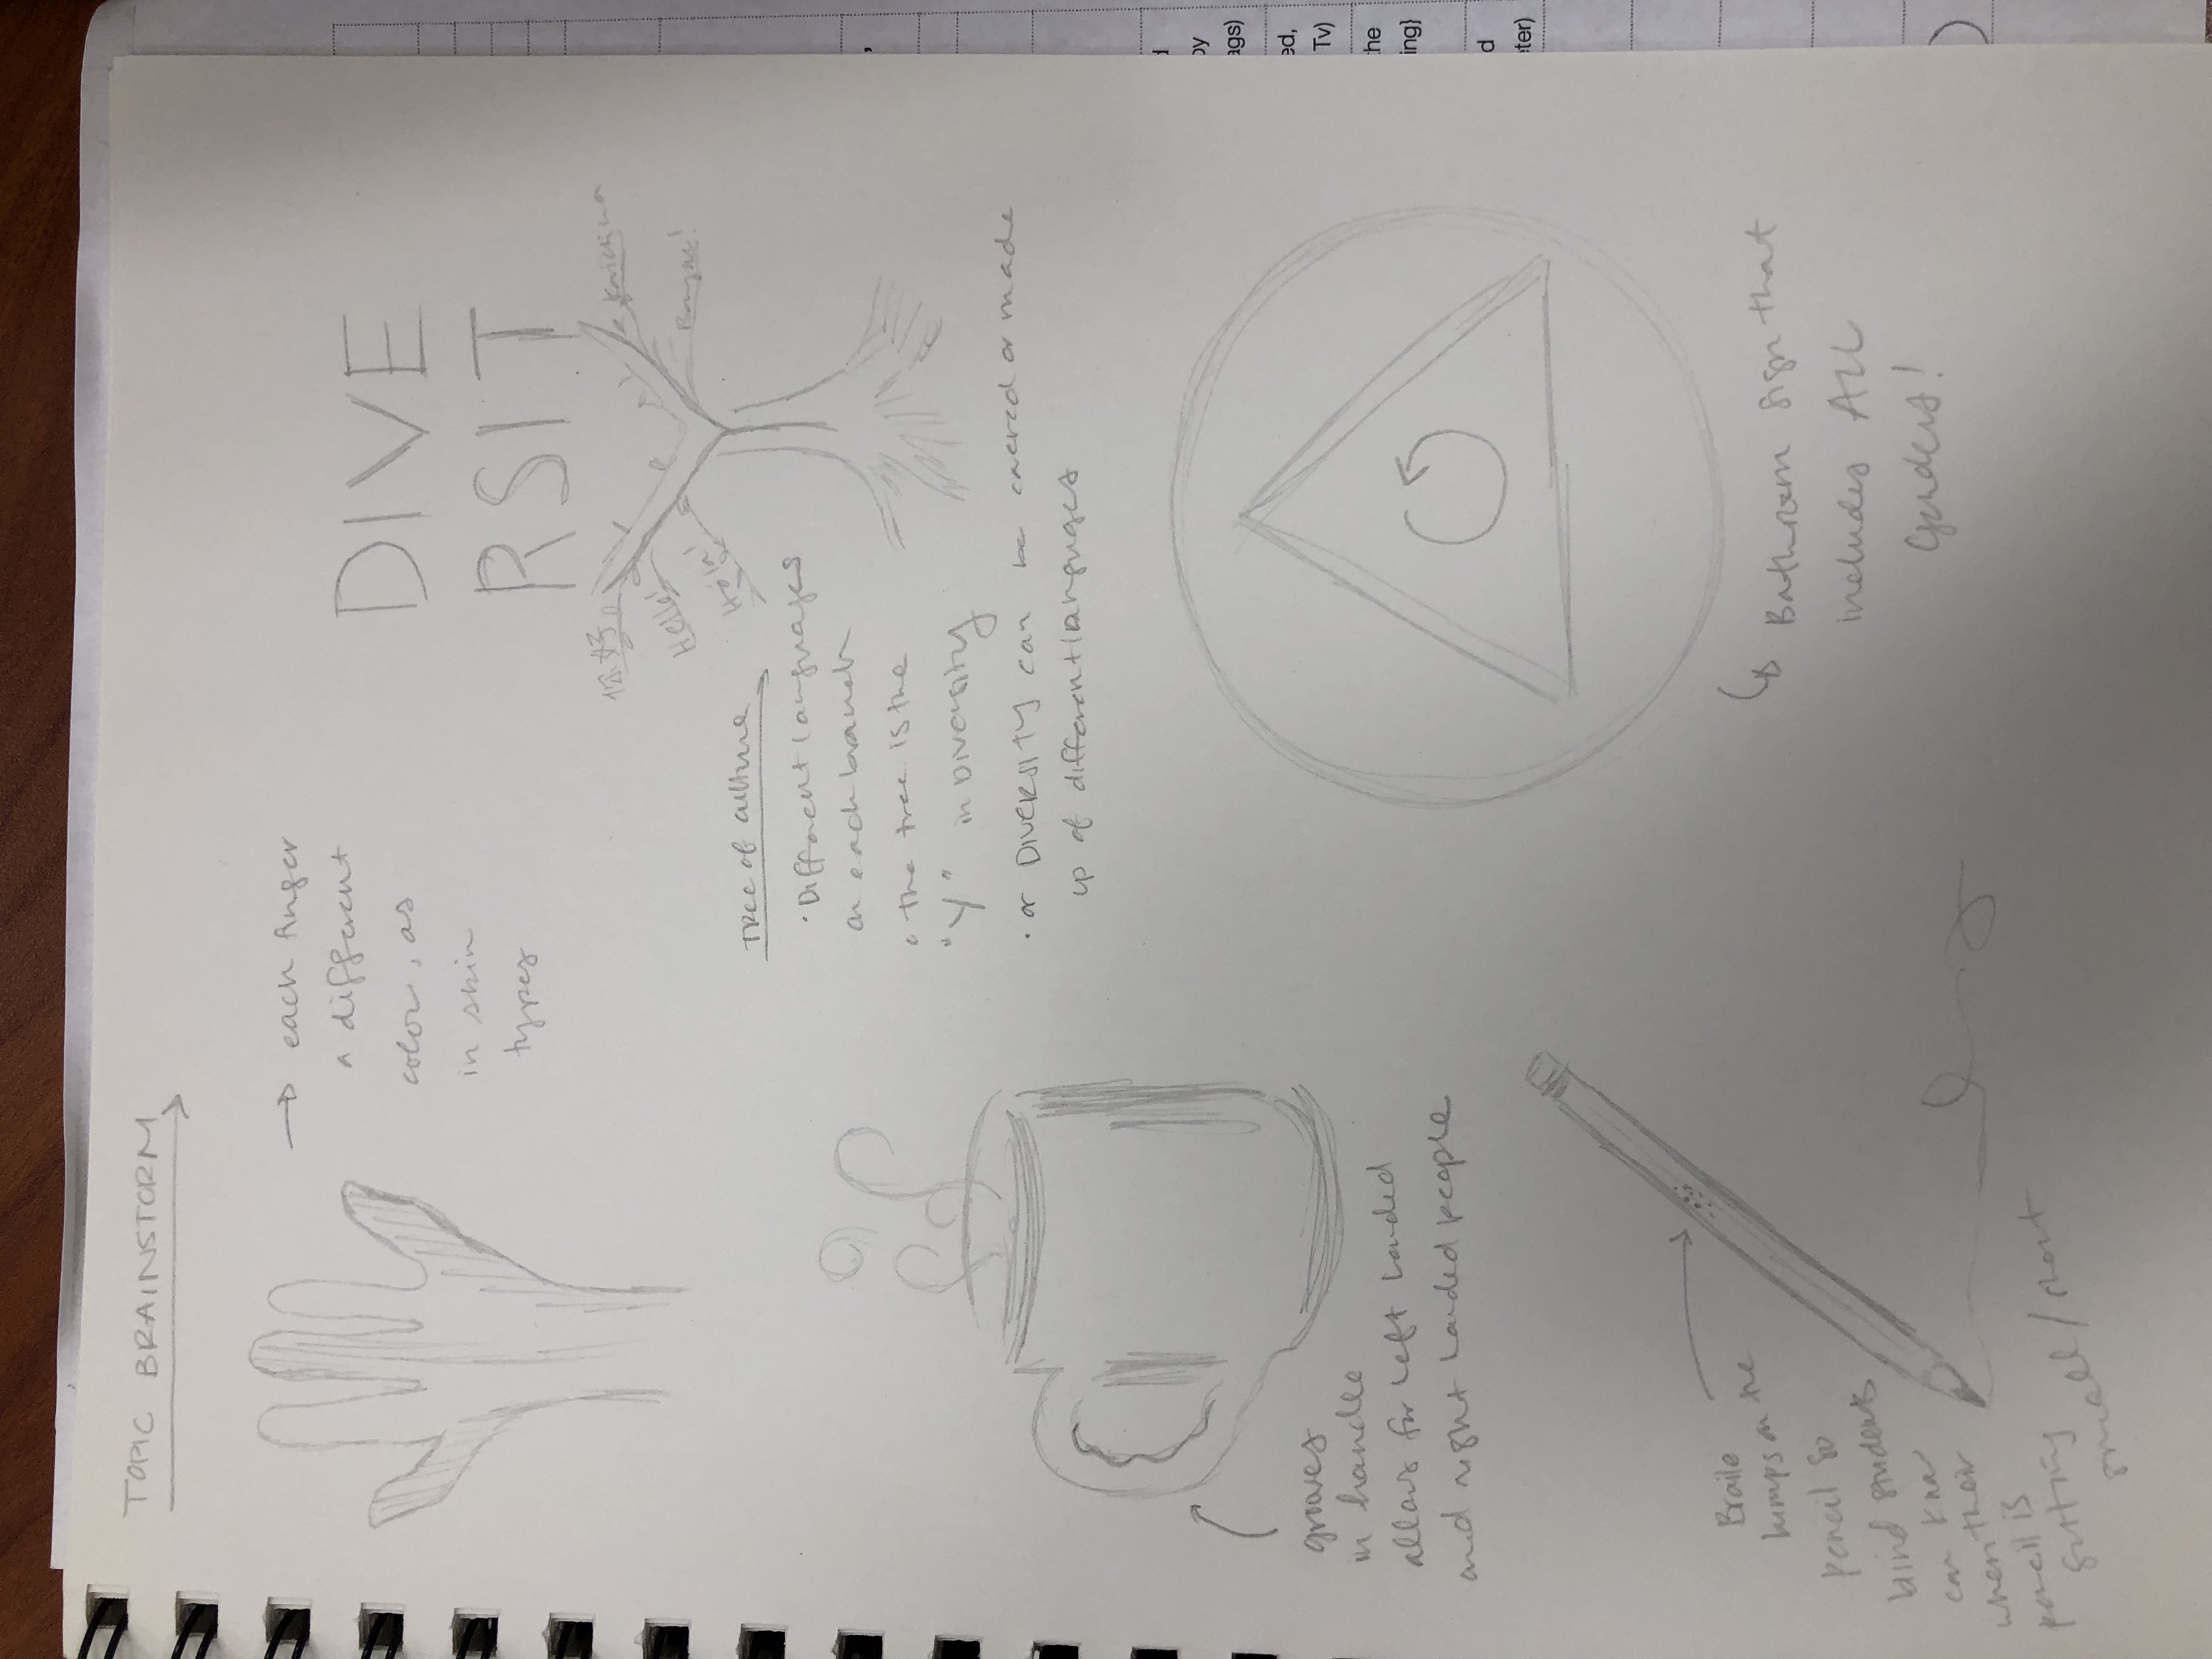 TOPIC BRAINSTORM
each finger
a different
color, as
in skin
types
DIVE
RSIT
你好
Hello!
Hola!
Konichiwa
Tree of culture
· Different languages
on each branch
· the tree is the
"Y" in Diversity
· or DIVERSITY can be covered or made
up of different languages
grooves
in handle
allows for left handed
and right handed people
Braile
bumps on the
pencil so
blind students
can know
when their
pencil is
getting
small/short
Bathroom sign that
includes ALL
Genders!
,
d
by
ags)
ed,
Tv)
the
ing}
d
eter)